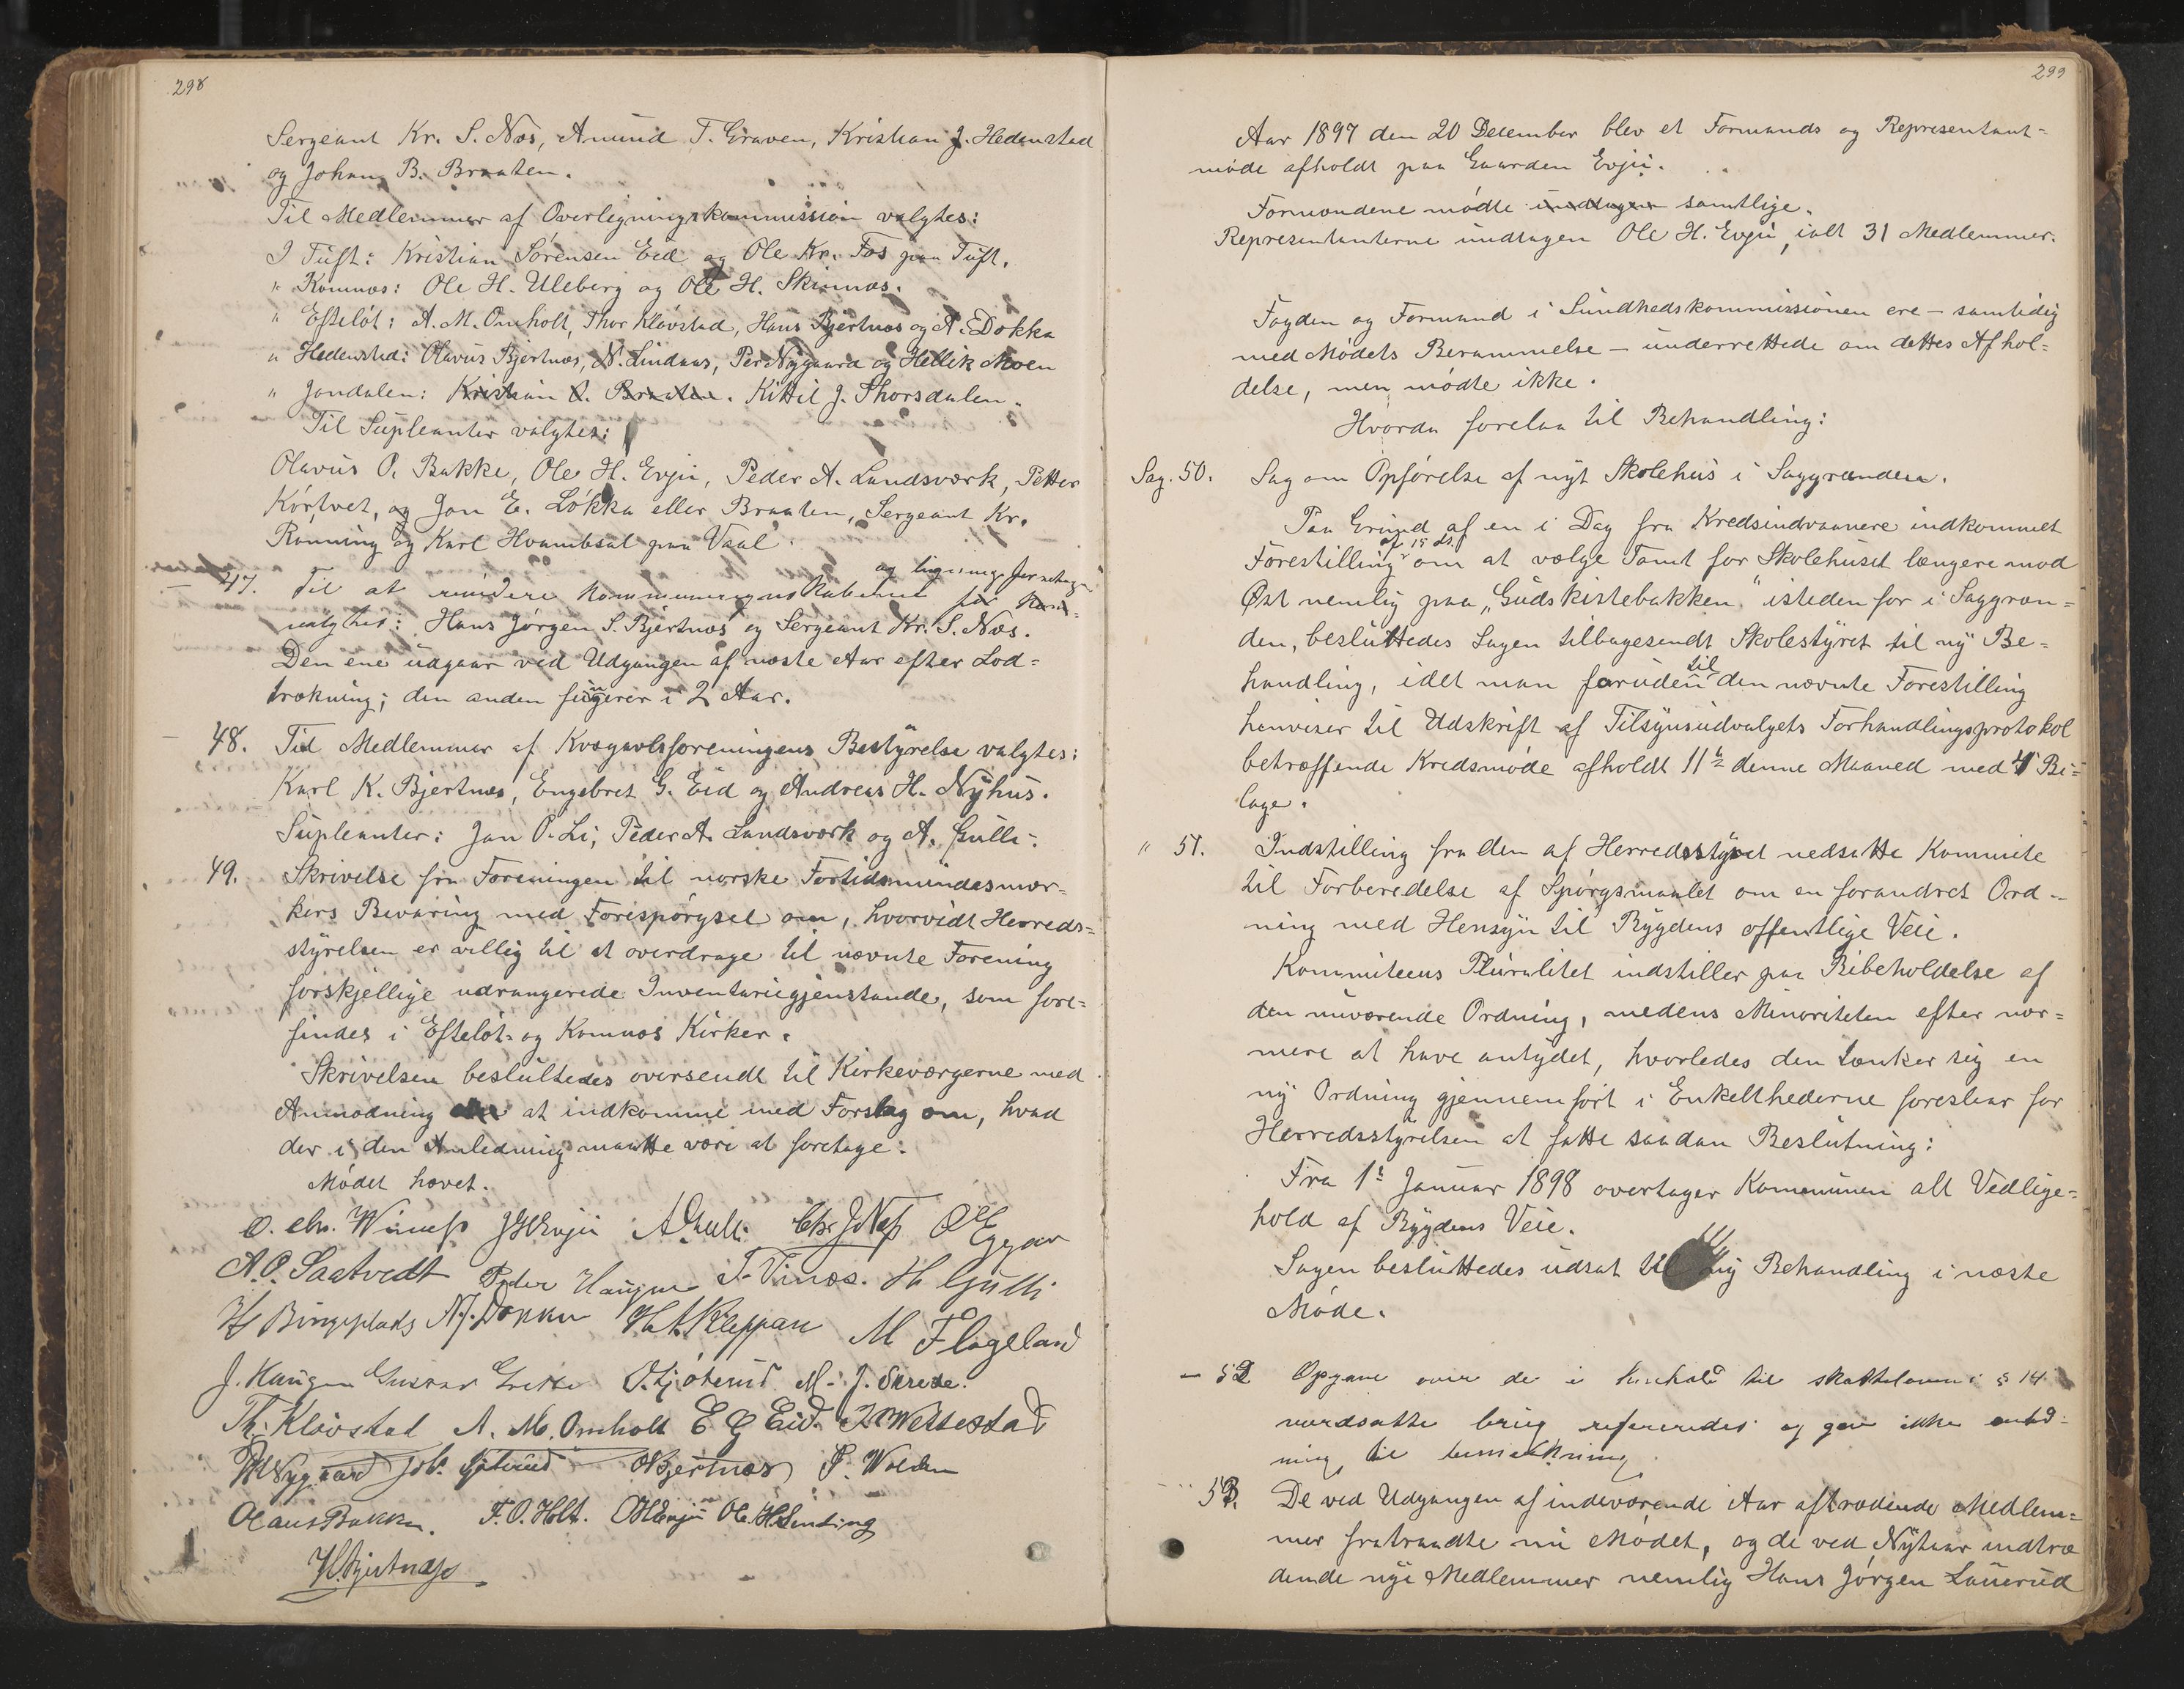 298
Sergeant Kr. S. Næs, Amund T. Graven, Kristian J. Hedenstad
og Johan B. Braaten.
Til Medlemmer af Overligningskommission valgtes:
I Tuft: Kristian Sørensen Eid og Ole Kr. Fos paa Tuft.
" Komnæs: Ole H. Uleberg og Ole H. Skimnæs.
" Efteløt: A. M. Omholt, Thor Kløvstad, Hans Bjertnæs og A. Dokka
" Hedenstad: Olavus Bjertnæs, N. Lindaas, Per Nygaard og Hellik Moen
" Jondalen: Kristian O. Braaten. Kittil J. Thorsdalen.
Til Supleanter valgtes:
Olavus O. Bakke, Ole H. Evju, Peder A. Landsværk, Petter
Kørtvet, og Jon E. Løkka eller Braaten, Sergeant Kr.
Rønning og Karl Hvambsal paa Vaal.
og ligningsforretninger
— 47. Til at revidere Kommuneregnskaberne for
valgtes: Hans Jørgen S. Bjertnæs og Sergeant Kr. S. Næs.
Den ene udgaar ved Udgangen af næste Aar efter Lod=
trækning; den anden fungerer i 2 Aar.
— 48. Til Medlemmer af Kvægavlsforeningens Bestyrelse valgtes:
Karl K. Bjertnæs, Engebret G. Eid og Andreas H. Nyhus.
Supleanter: Jan P. Li, Peder A. Landsværk og A. Gulli.
49. Skrivelse fra Foreningen til norske Fortidsmindesmær=
kers Bevaring med Forespørgsel om, hvorvidt Herreds=
styrelsen er villig til at overdrage til nævnte Forening
forskjellige udrangerede Inventariegjenstande, som fore=
findes i Efteløt- og Komnæs Kirker.
Skrivelsen besluttedes oversendt til Kirkeværgerne med
Anmodning at indkomme med Forslag om, hvad
der i den Anledning maatte være at foretage.
Mødet hævet.
O. Chr. Winess JHEvju A Gulli Chr J Næss O E Eggar
A. O. Saatvedt Peder Haugen T. Vinæs. H Gulli
H Bingeplads N J. Dokka H A Kleppan M Flageland
J. Haugen Gunnar Grette O. Gjøterud M. J. Skrede.
Th. Kløvstad A. M. Omholt E G Eid J Wettestad
P Nygaard Joh. Gjøterud OBjertnæs P. Wolden
Olaus Bakke. F. O. Holt. OHEvju Ole H Senting
H. Bjertnæss
299
Aar 1897 den 20 December blev et Formands og Representant=
møde afholdt paa Gaarden Evju.
Formændene mødte undtagen samtlige.
Representanterne undtagen Ole H. Evju, ialt 31 Medlemmer.
Fogden og Formand i Sundhedskommissionen ere – samtidig
med Mødets Berammelse – underrettede om dettes Afhol=
delse, men mødte ikke.
Hvorda forelaa til Behandling:
Sag. 50. Sag om Opførelse af nyt Skolehus i Saggrænden.
Paa Grund af en i Dag fra Kredsindvaanere indkommet
af 15 ds.
Forestilling om at vælge Tomt for Skolehuset længere mod
Øst nemlig paa „Gudskistebakken" istedenfor i Saggræn=
den, besluttedes Sagen tilbagesendt Skolestyret til ny Be=
handling, idet man foruden til den nævnte Forestilling
henviser til Udskrift af Tilsynsudvalgets Forhandlingsprotokol
betræffende Kredsmøde afholdt 11te denne Maaned med 4 Bi=
lage.
" 51. Indstilling fra den af Herredsstyret nedsatte Kommite
til Forberedelse af Spørgsmaalet om en forandret Ord=
ning med Hensyn til Bygdens offentlige Veie.
Kommiteens Pluralitet indstiller paa Bibeholdelse af
den nuværende Ordning, medens Minoriteten efter nær=
mere at have antydet, hvorledes den tænker sig en
ny Ordning gjennemført i Enkelthederne foreslaar for
Herredsstyrelsen at fatte saadan Beslutning:
Fra 1ste Januar 1898 overtager Kommunen alt Vedlige=
hold af Bygdens Veie.
Sagen besluttedes udsat til ny Behandling i næste
Møde.
— 52 Opgave over de i Henhold til skatteloven's § 14
værdsatte brug refereredes og gav ikke anled=
ning til bemærkning.
— 53. De ved Udgangen af indeværende Aar aftrædende Medlem=
mer fratraadte nu Mødet, og de ved Nytaar indtræ
dende nye Medlemmer nemlig Hans Jørgen Lauerud